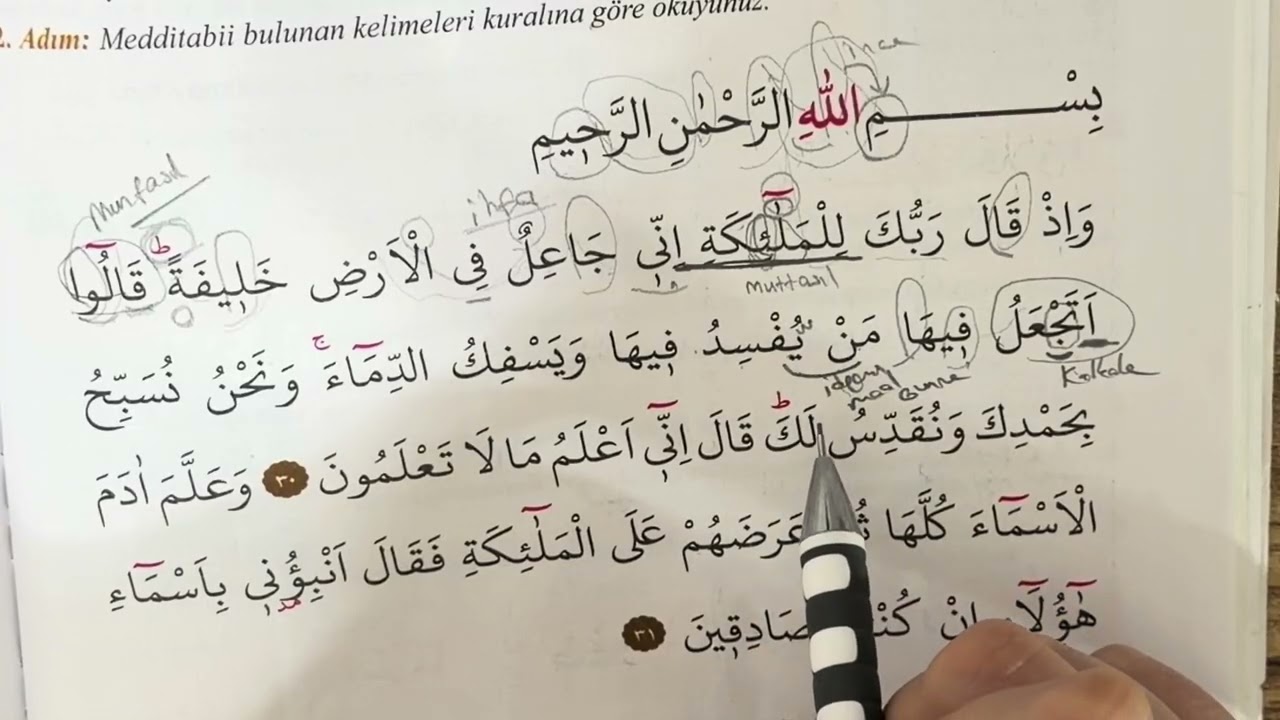 2. Adım: Medditabii bulunan kelimeleri kuralına göre okuyunuz.
ince
بِسْمِ اللّٰهِ الرَّحْمٰنِ الرَّحٖيمِ
Munfasıl
ihfa
وَاِذْ قَالَ رَبُّكَ لِلْمَلٰٓئِكَةِ اِنّٖي جَاعِلٌ فِي الْاَرْضِ خَلٖيفَةًؕ قَالُٓوا
muttasıl
اَتَجْعَلُ فٖيهَا مَنْ يُفْسِدُ فٖيهَا وَيَسْفِكُ الدِّمَٓاءَۚ وَنَحْنُ نُسَبِّحُ
Kalkale
بِحَمْدِكَ وَنُقَدِّسُ لَكَؕ قَالَ اِنّٖٓي اَعْلَمُ مَا لَا تَعْلَمُونَ ٣٠ وَعَلَّمَ اٰدَمَ
الْاَسْمَٓاءَ كُلَّهَا عَرَضَهُمْ عَلَى الْمَلٰٓئِكَةِ فَقَالَ اَنْبِؤُنٖي بِاَسْمَٓاءِ
مد
هٰٓؤُلَٓاءِ اِنْ صَادِقٖينَ ٣١